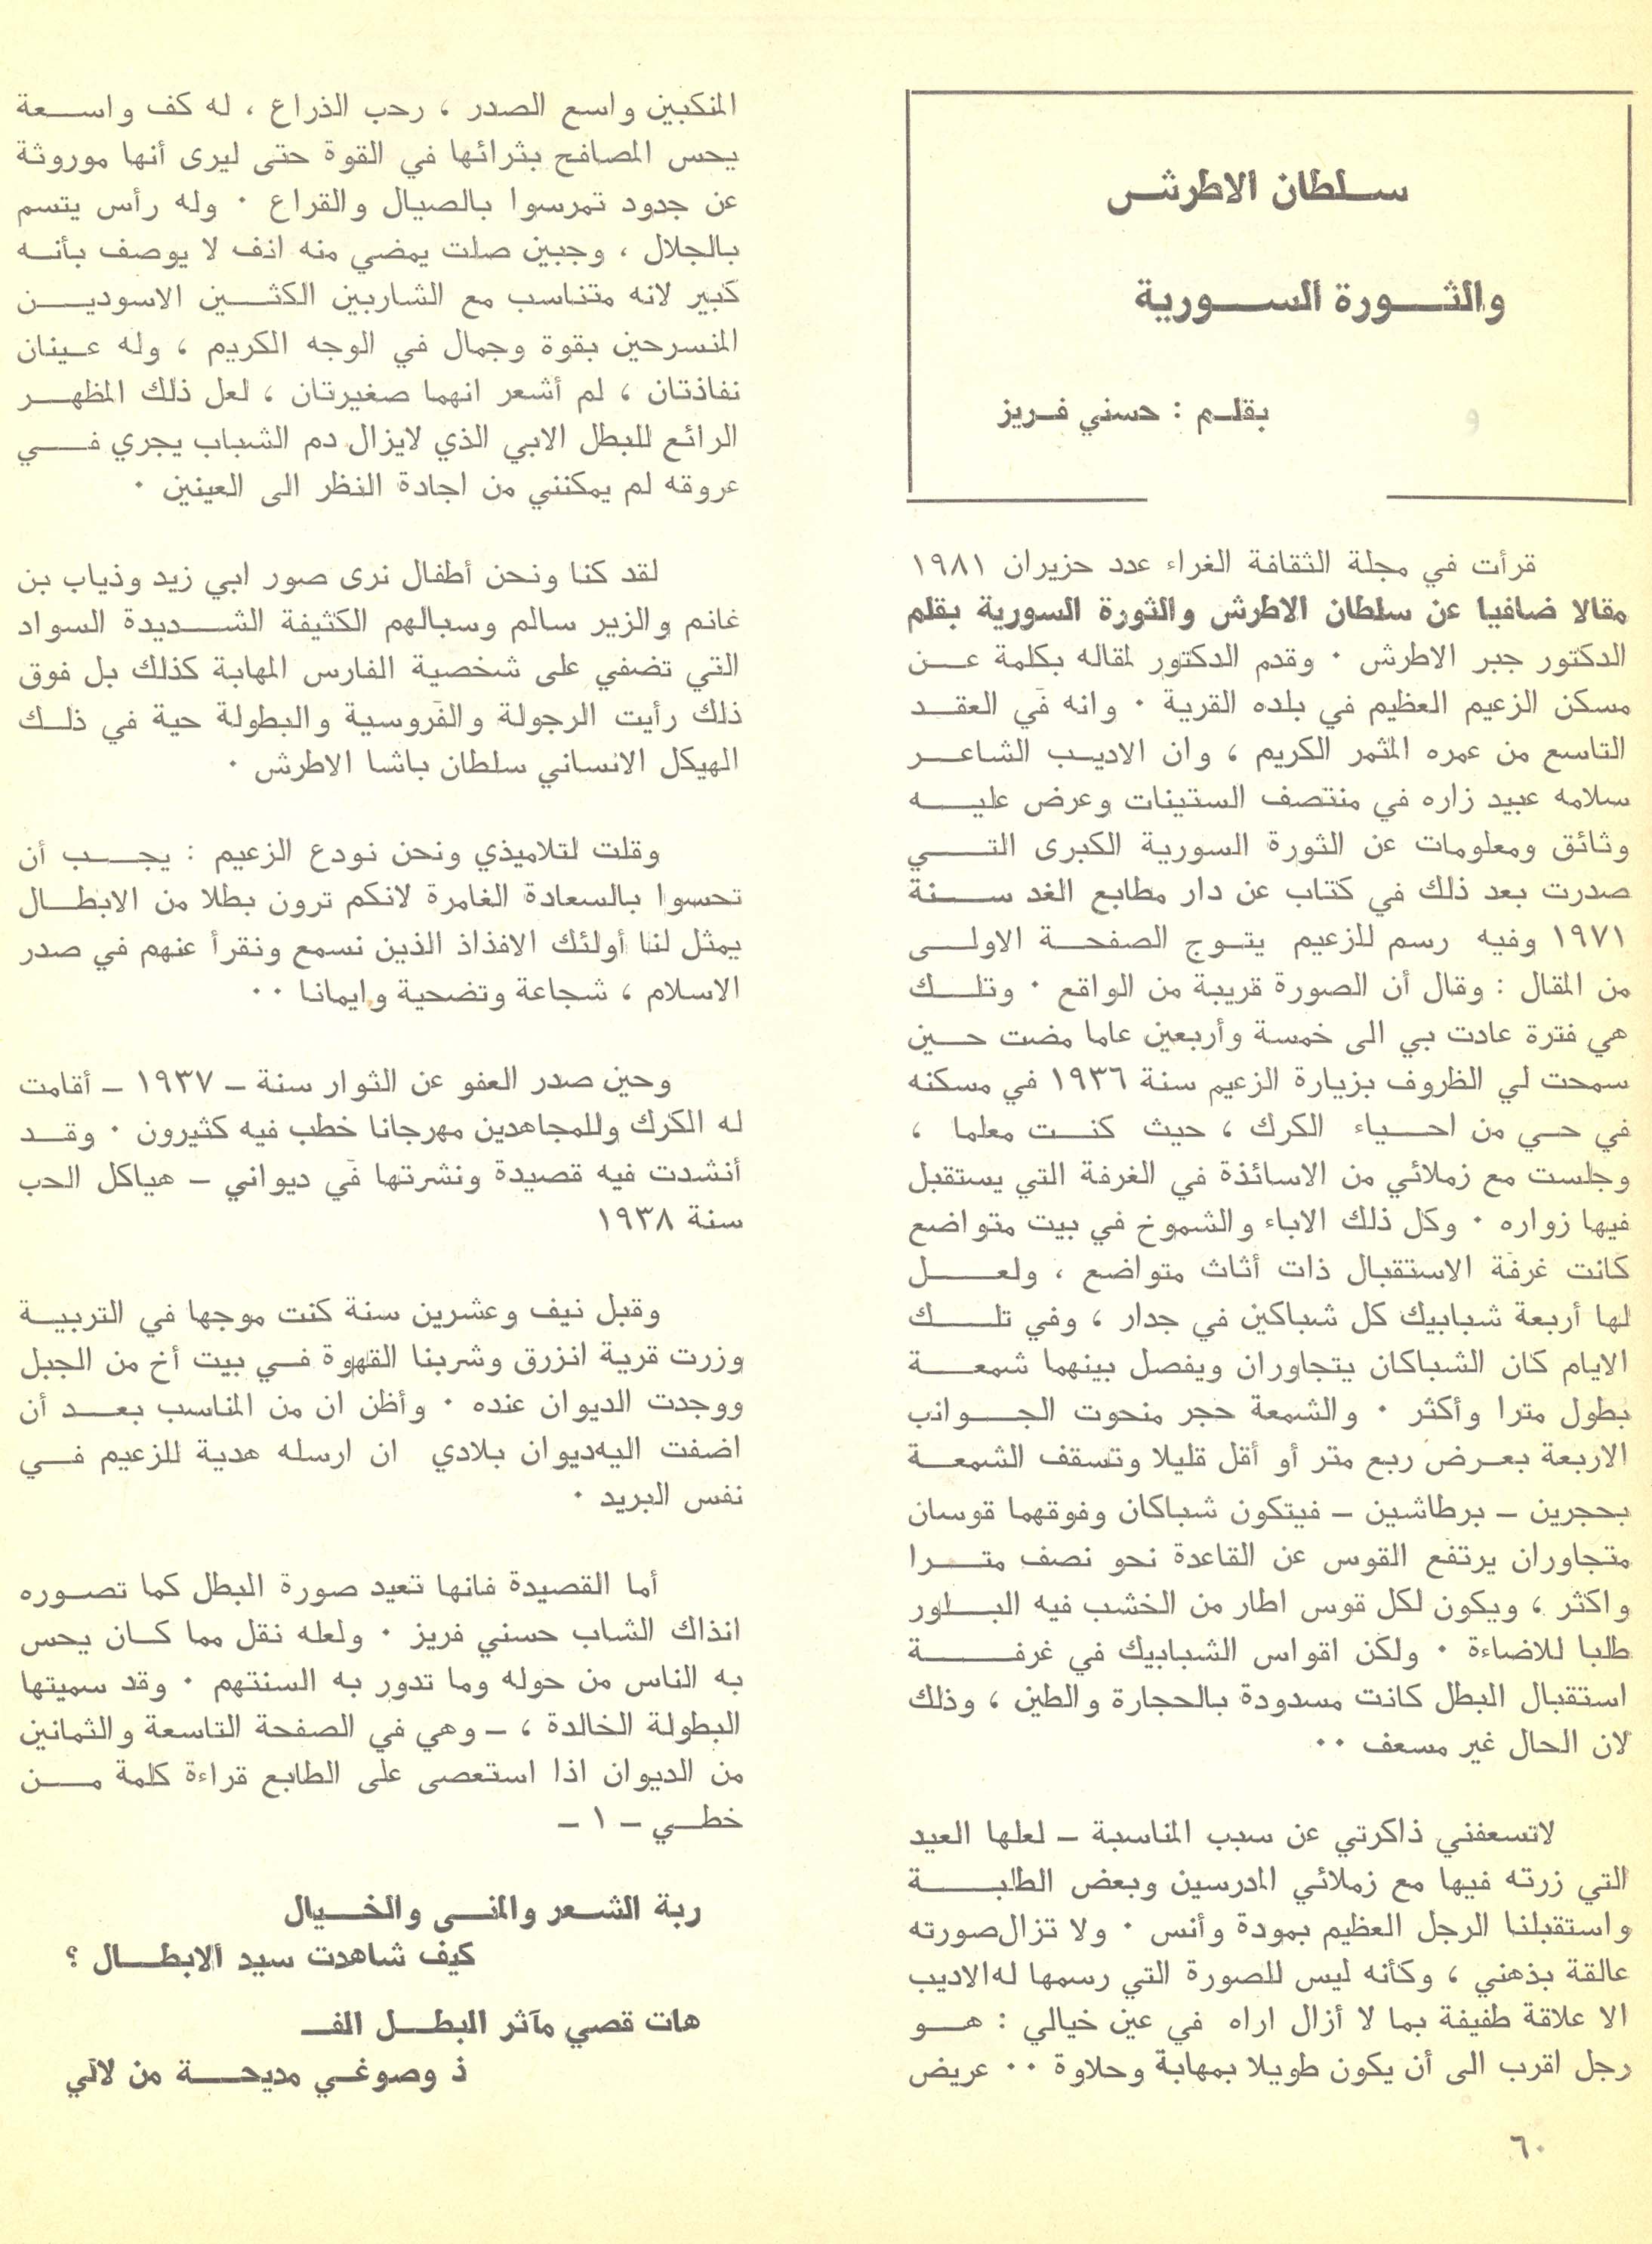 سلطان الاطرش
والثورة السورية
بقلم : حسني فريز
قرأت في مجلة الثقافة الغراء عدد حزيران ١٩٨١
مقالا ضافيا عن سلطان الاطرش والثورة السورية بقلم
الدكتور جبر الاطرش ٠ وقدم الدكتور لمقاله بكلمة عن
مسكن الزعيم العظيم في بلده القرية ٠ وانه في العقد
التاسع من عمره المثمر الكريم ، وان الاديب الشاعر
سلامه عبيد زاره في منتصف الستينات وعرض عليه
وثائق ومعلومات عن الثورة السورية الكبرى التي
صدرت بعد ذلك في كتاب عن دار مطابع الغد سنة
١٩٧١ وفيه رسم للزعيم يتوج الصفحة الاولى
من المقال : وقال أن الصورة قريبة من الواقع ٠ وتلك
هي فترة عادت بي الى خمسة وأربعين عاما مضت حين
سمحت لي الظروف بزيارة الزعيم سنة ١٩٣٦ في مسكنه
في حي من احياء الكرك ، حيث كنت معلما ،
وجلست مع زملائي من الاسائذة في الغرفة التي يستقبل
فيها زواره ٠ وكل ذلك الاباء والشموخ في بيت متواضع
كانت غرفة الاستقبال ذات أثاث متواضع ، ولعل
لها أربعة شبابيك كل شباكين في جدار ، وفي تلك
الايام كان الشباكان يتجاوران ويفصل بينهما شمعة
بطول مترا وأكثر ٠ والشمعة حجر منحوت الجوانب
الاربعة بعرض ربع متر أو أقل قليلا وتسقف الشمعة
بحجرين ــ برطاشين ــ فيتكون شباكان وفوقهما قوسان
متجاوران يرتفع القوس عن القاعدة نحو نصف مترا
واكثر ، ويكون لكل قوس اطار من الخشب فيه البلور
طلبا للاضاءة ٠ ولكن اقواس الشبابيك في غرفة
استقبال البطل كانت مسدودة بالحجارة والطين ، وذلك
لان الحال غير مسعف ٠٠
لاتسعفني ذاكرتي عن سبب المناسبة ــ لعلها العيد
التي زرته فيها مع زملائي المدرسين وبعض الطلبة
واستقبلنا الرجل العظيم بمودة وأنس ٠ ولا تزال صورته
عالقة بذهني ، وكأنه ليس للصورة التي رسمها له الاديب
الا علاقة طفيفة بما لا أزال اراه في عين خيالي : هو
رجل اقرب الى أن يكون طويلا بمهابة وحلاوة ٠٠ عريض
المنكبين واسع الصدر ، رحب الذراع ، له كف واسعة
يحس المصافح بثرائها في القوة حتى ليرى أنها موروثة
عن جدود تمرسوا بالصيال والقراع ٠ وله رأس يتسم
بالجلال ، وجبين صلت يمضي منه انف لا يوصف بأنه
كبير لانه متناسب مع الشاربين الكثين الاسودين
المنسرحين بقوة وجمال في الوجه الكريم ، وله عينان
نفاذتان ، لم أشعر انهما صغيرتان ، لعل ذلك المظهر
الرائع للبطل الابي الذي لايزال دم الشباب يجري في
عروقه لم يمكنني من اجادة النظر الى العينين ٠
لقد كنا ونحن أطفال نرى صور ابي زيد وذياب بن
غانم والزير سالم وسبالهم الكثيفة الشديدة السواد
التي تضفي على شخصية الفارس المهابة كذلك بل فوق
ذلك رأيت الرجولة والفروسية والبطولة حية في ذلك
الهيكل الانساني سلطان باشا الاطرش ٠
وقلت لتلاميذي ونحن نودع الزعيم : يجب أن
تحسوا بالسعادة الغامرة لانكم ترون بطلا من الابطال
يمثل لنا أولئك الافذاذ الذين نسمع ونقرأ عنهم في صدر
الاسلام ، شجاعة وتضحية وايمانا ٠٠
وحين صدر العفو عن الثوار سنة ــ ١٩٣٧ ــ أقامت
له الكرك وللمجاهدين مهرجانا خطب فيه كثيرون ٠ وقد
أنشدت فيه قصيدة ونشرتها في ديواني ــ هياكل الحب
سنة ١٩٣٨
وقبل نيف وعشرين سنة كنت موجها في التربية
وزرت قرية انزرق وشربنا القهوة في بيت أخ من الجبل
ووجدت الديوان عنده ٠ وأظن ان من المناسب بعد أن
اضفت اليه ديوان بلادي ان ارسله هدية للزعيم في
نفس البريد ٠
أما القصيدة فانها تعيد صورة البطل كما تصوره
انذاك الشاب حسني فريز ٠ ولعله نقل مما كان يحس
به الناس من حوله وما تدور به السنتهم ٠ وقد سميتها
البطولة الخالدة ، ــ وهي في الصفحة التاسعة والثمانين
من الديوان اذا استعصى على الطابع قراءة كلمة من
خطي ــ ١ ــ
ربة الشعر والمنى والخيال
كيف شاهدت سيد الابطال ؟
هات قصي مآثر البطل الفـ
ذ وصوغي مديحة من لآلي
٦٠